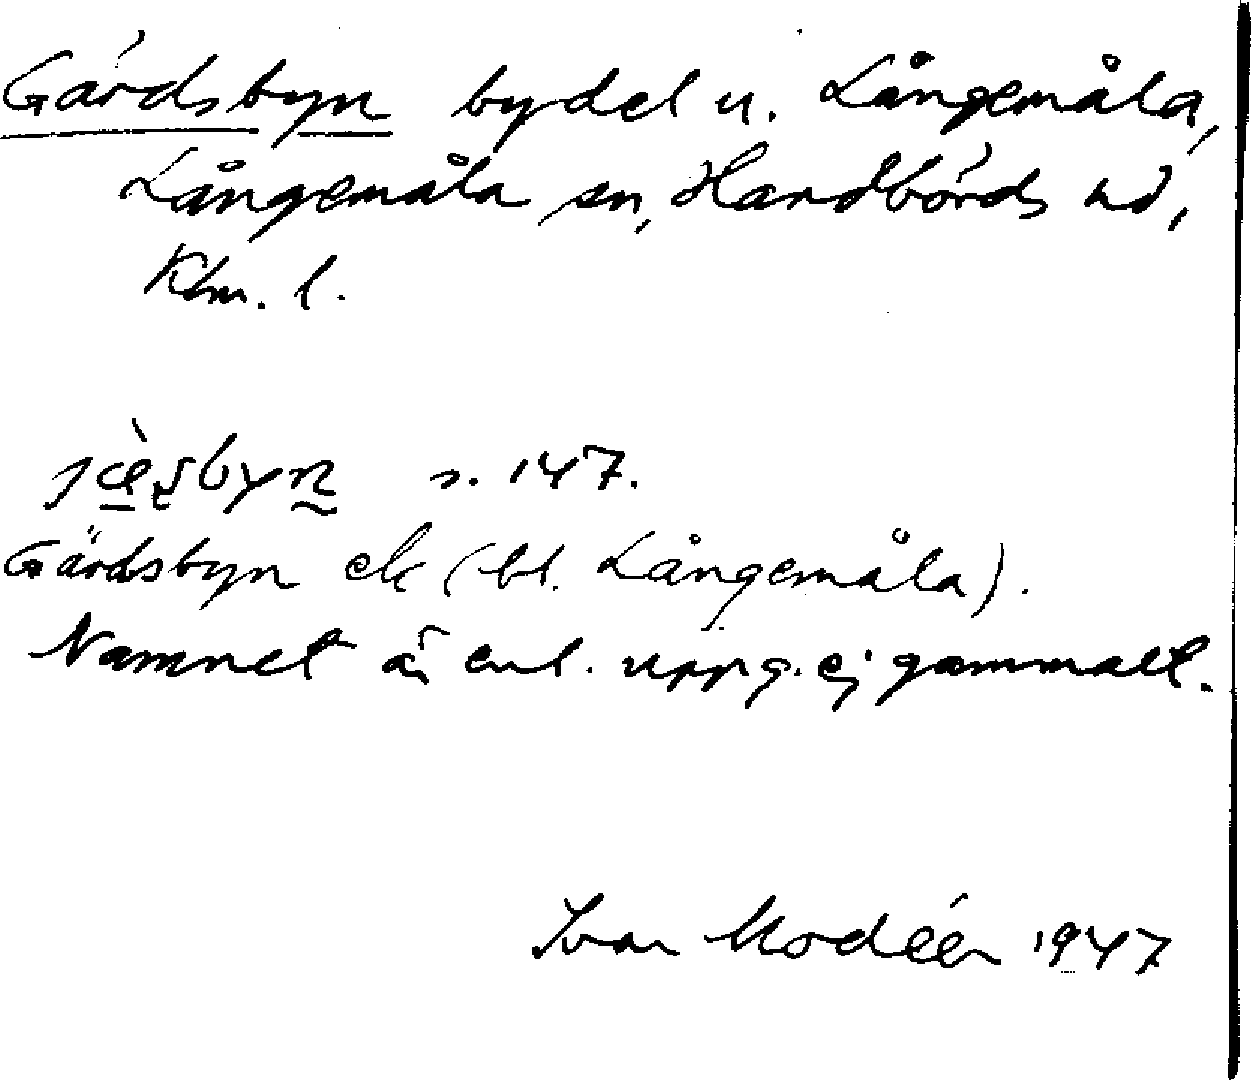 Gärdsbyn bydel u. Långemåla,
Långemåla sn, Handbörds hd,
Klm. l.
s. 147.
Gärdsbyn ek (bl. Långemåla).
Namnet är enl. uppg. ej gammalt.
Ivar Modéer 1947